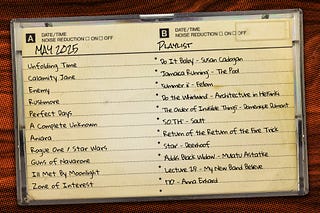 A DATE/TIME
NOISE REDUCTION ☐ ON ☐ OFF
MAY 2025
Unfolding Time
Calamity Jane
Enemy
Rushmore
Perfect Days
A Complete Unknown
Aniara
Rogue One / Star Wars
Guns of Navarone
Ill Met By Moonlight
Zone of Interest
B DATE/TIME
NOISE REDUCTION ☐ ON ☐ OFF
PLAYLIST
* Do It Baby - Susan Cadogan
* Jamaica Running - The Pool
* Summer's - Felbm
* Do the Whirlwind - Architecture in Helsinki
* The Order of Invisible Things - Dominique Dumont
* S.O.T.H - Sault
* Return of the Return of the Fire Trick
* Star - Deerhoof
* Addis Black Widow - Mulatu Astatke
* Lecture 28 - My New Band Believe
* - Anna Erhard